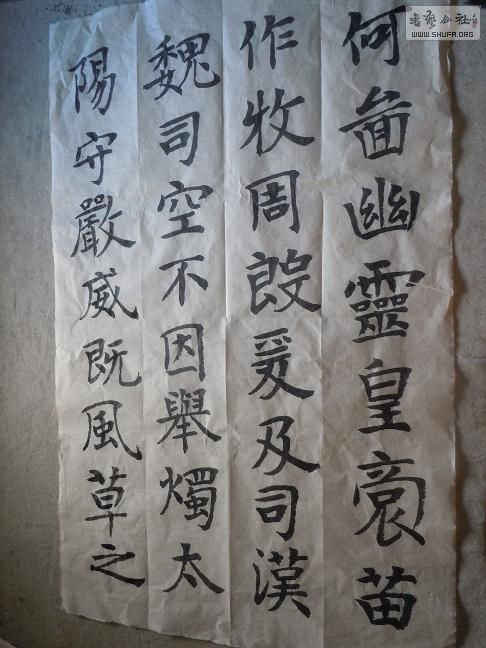 何啚幽靈皇裔苗
作牧周殷爰及司漢
魏司空不因舉燭太
陽守嚴威既風草之
書藝公社
WWW.SHUFA.ORG